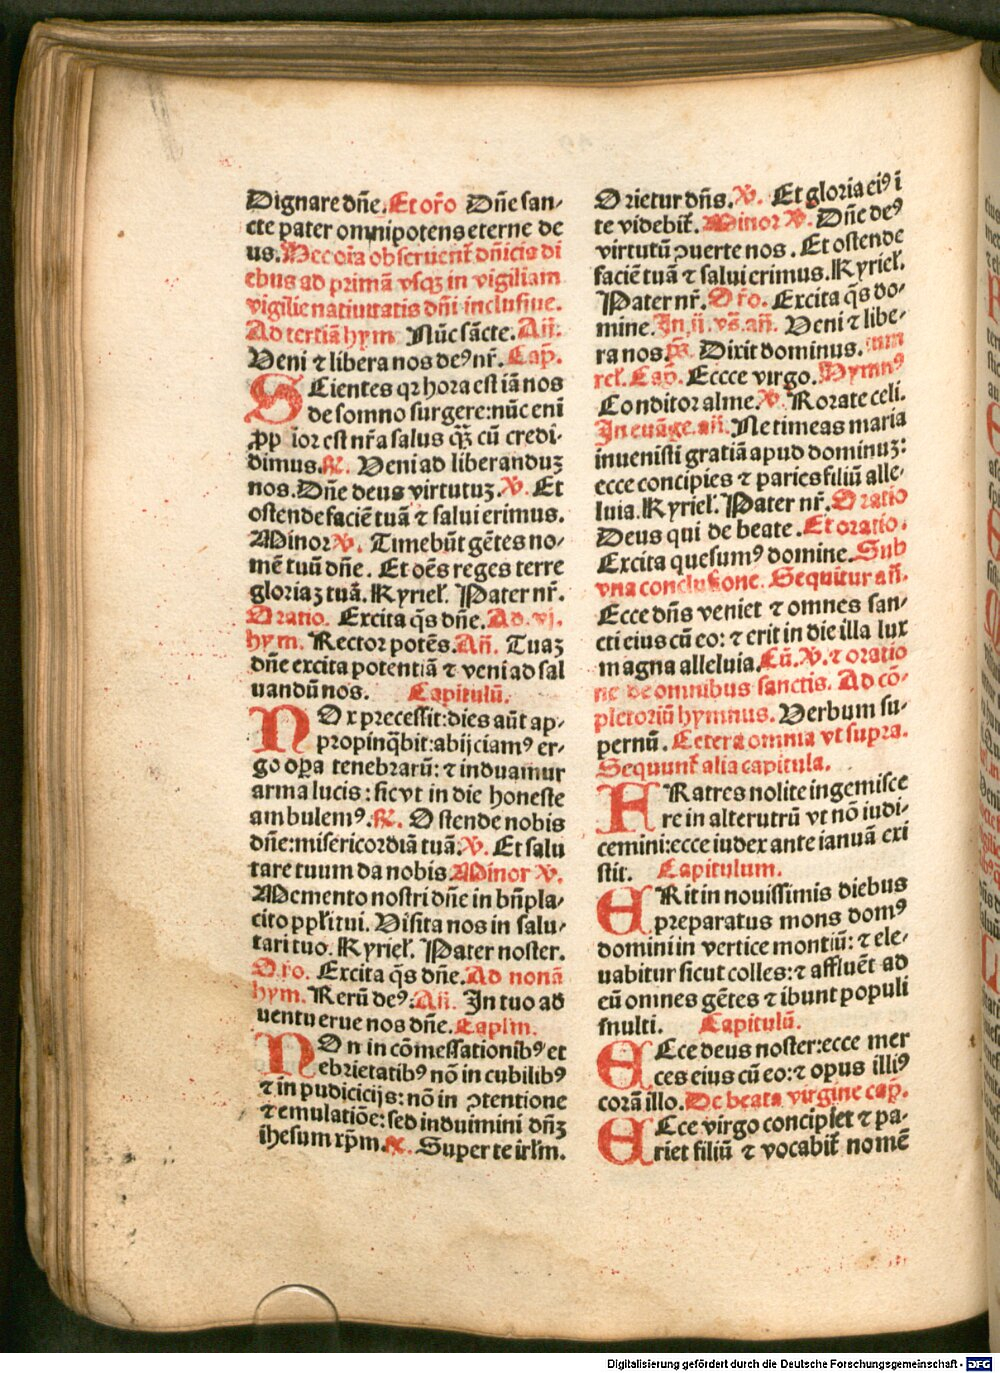 Dignare dñe. Et or̃o Dñe san-
cte pater omnipotens eterne de
us. Nec oĩa obseruent̃ dñicis di
ebus ad primã vsqꝫ in vigiliam
vigilie natiuitatis dñi inclusiue.
Ad tertiã hym Nũc sãcte. Añ.
Veni ⁊ libera nos deꝰ nr̃. Cap̃.
SCientes qꝛ hora est iã nos
de somno surgere: nũc eni
ꝓp ior est nr̃a salus qꝫ̃ cũ credi-
dimus. ℟. Veni ad liberanduꝫ
nos. Dñe deus virtutuꝫ. ℣. Et
ostende faciẽ tuã ⁊ salui erimus.
Minor ℣. Timebũt gẽtes no-
mẽ tuũ dñe. Et oẽs reges terre
gloriaꝫ tuã. Kyriel̃. Pater nr̃.
Oratio. Excita q̃s dñe. Ad. vj.
hym. Rector potẽs. Añ. Tuaꝫ
dñe excita potentiã ⁊ veni ad sal
uandũ nos. Capitulũ.
NOx precessit: dies aũt ap-
propinq̃bit: abijciamꝰ er-
go oꝑa tenebrarũ: ⁊ induamur
arma lucis: sicvt in die honeste
ambulemꝰ. ℟. Ostende nobis
dñe: misericordiã tuã. ℣. Et salu
tare tuum da nobis. Minor ℣.
Memento nostri dñe in bñpla-
cito ppl̃i tui. Visita nos in salu-
tari tuo. Kyriel̃. Pater noster.
Or̃o. Excita q̃s dñe. Ad nonã
hym. Rerũ deꝰ. Añ. In tuo ad
uentu erue nos dñe. Capl̃m.
NOn in cõmessationibꝰ et
ebrietatibꝰ nõ in cubilibꝰ
⁊ in pudicicijs: nõ in ꝯtentione
⁊ emulatiõe: sed induimini dñꝫ
ihesum xp̃m. ℟. Super te irl̃m.
Orietur dñs. ℣. Et gloria eiꝰ ĩ
te videbit̃. Minor ℣. Dñe deꝰ
virtutũ ꝯuerte nos. Et ostende
faciẽ tuã ⁊ salui erimus. Kyriel̃.
Pater nr̃. Or̃o. Excita q̃s do-
mine. In. ij. vs̃. añ. Veni ⁊ libe-
ra nos. p̃s. Dixit dominus. cum
rel̃. Cap̃. Eccce virgo. Hymnꝰ
Conditor alme. ℣. Rorate celi.
In euãge. añ. Ne timeas maria
inuenisti gratiã apud dominuꝫ:
ecce concipies ⁊ paries filiũ alle-
luia. Kyriel̃. Pater nr̃. Oratio
Deus qui de beate. Et oratio.
Excita quesumꝰ domine. Sub
vna conclusione. Sequitur añ.
Ecce dñs veniet ⁊ omnes san-
cti eius cũ eo: ⁊ erit in die illa lux
magna alleluia. Cũ. ℣. ⁊ oratio
ne de omnibus sanctis. Ad cõ-
pletoriũ hymnus. Verbum su-
pernũ. Cetera omnia vt supra.
Sequunt̃ alia capitula.
FRatres nolite ingemisce
re in alterutrũ vt nõ iudi-
cemini: ecce iudex ante ianuã exi
stit. Capitulum.
ERit in nouissimis diebus
preparatus mons domꝰ
domini in vertice montiũ: ⁊ ele-
uabitur sicut colles: ⁊ affluẽt ad
eũ omnes gẽtes ⁊ ibunt populi
multi. Capitulũ.
ECce deus noster: ecce mer
ces eius cũ eo: ⁊ opus illiꝰ
corã illo. De beata virgine cap̃.
ECce virgo concipiet ⁊ pa-
riet filiũ ⁊ vocabit̃ nomẽ
Digitalisierung gefördert durch die Deutsche Forschungsgemeinschaft - DFG